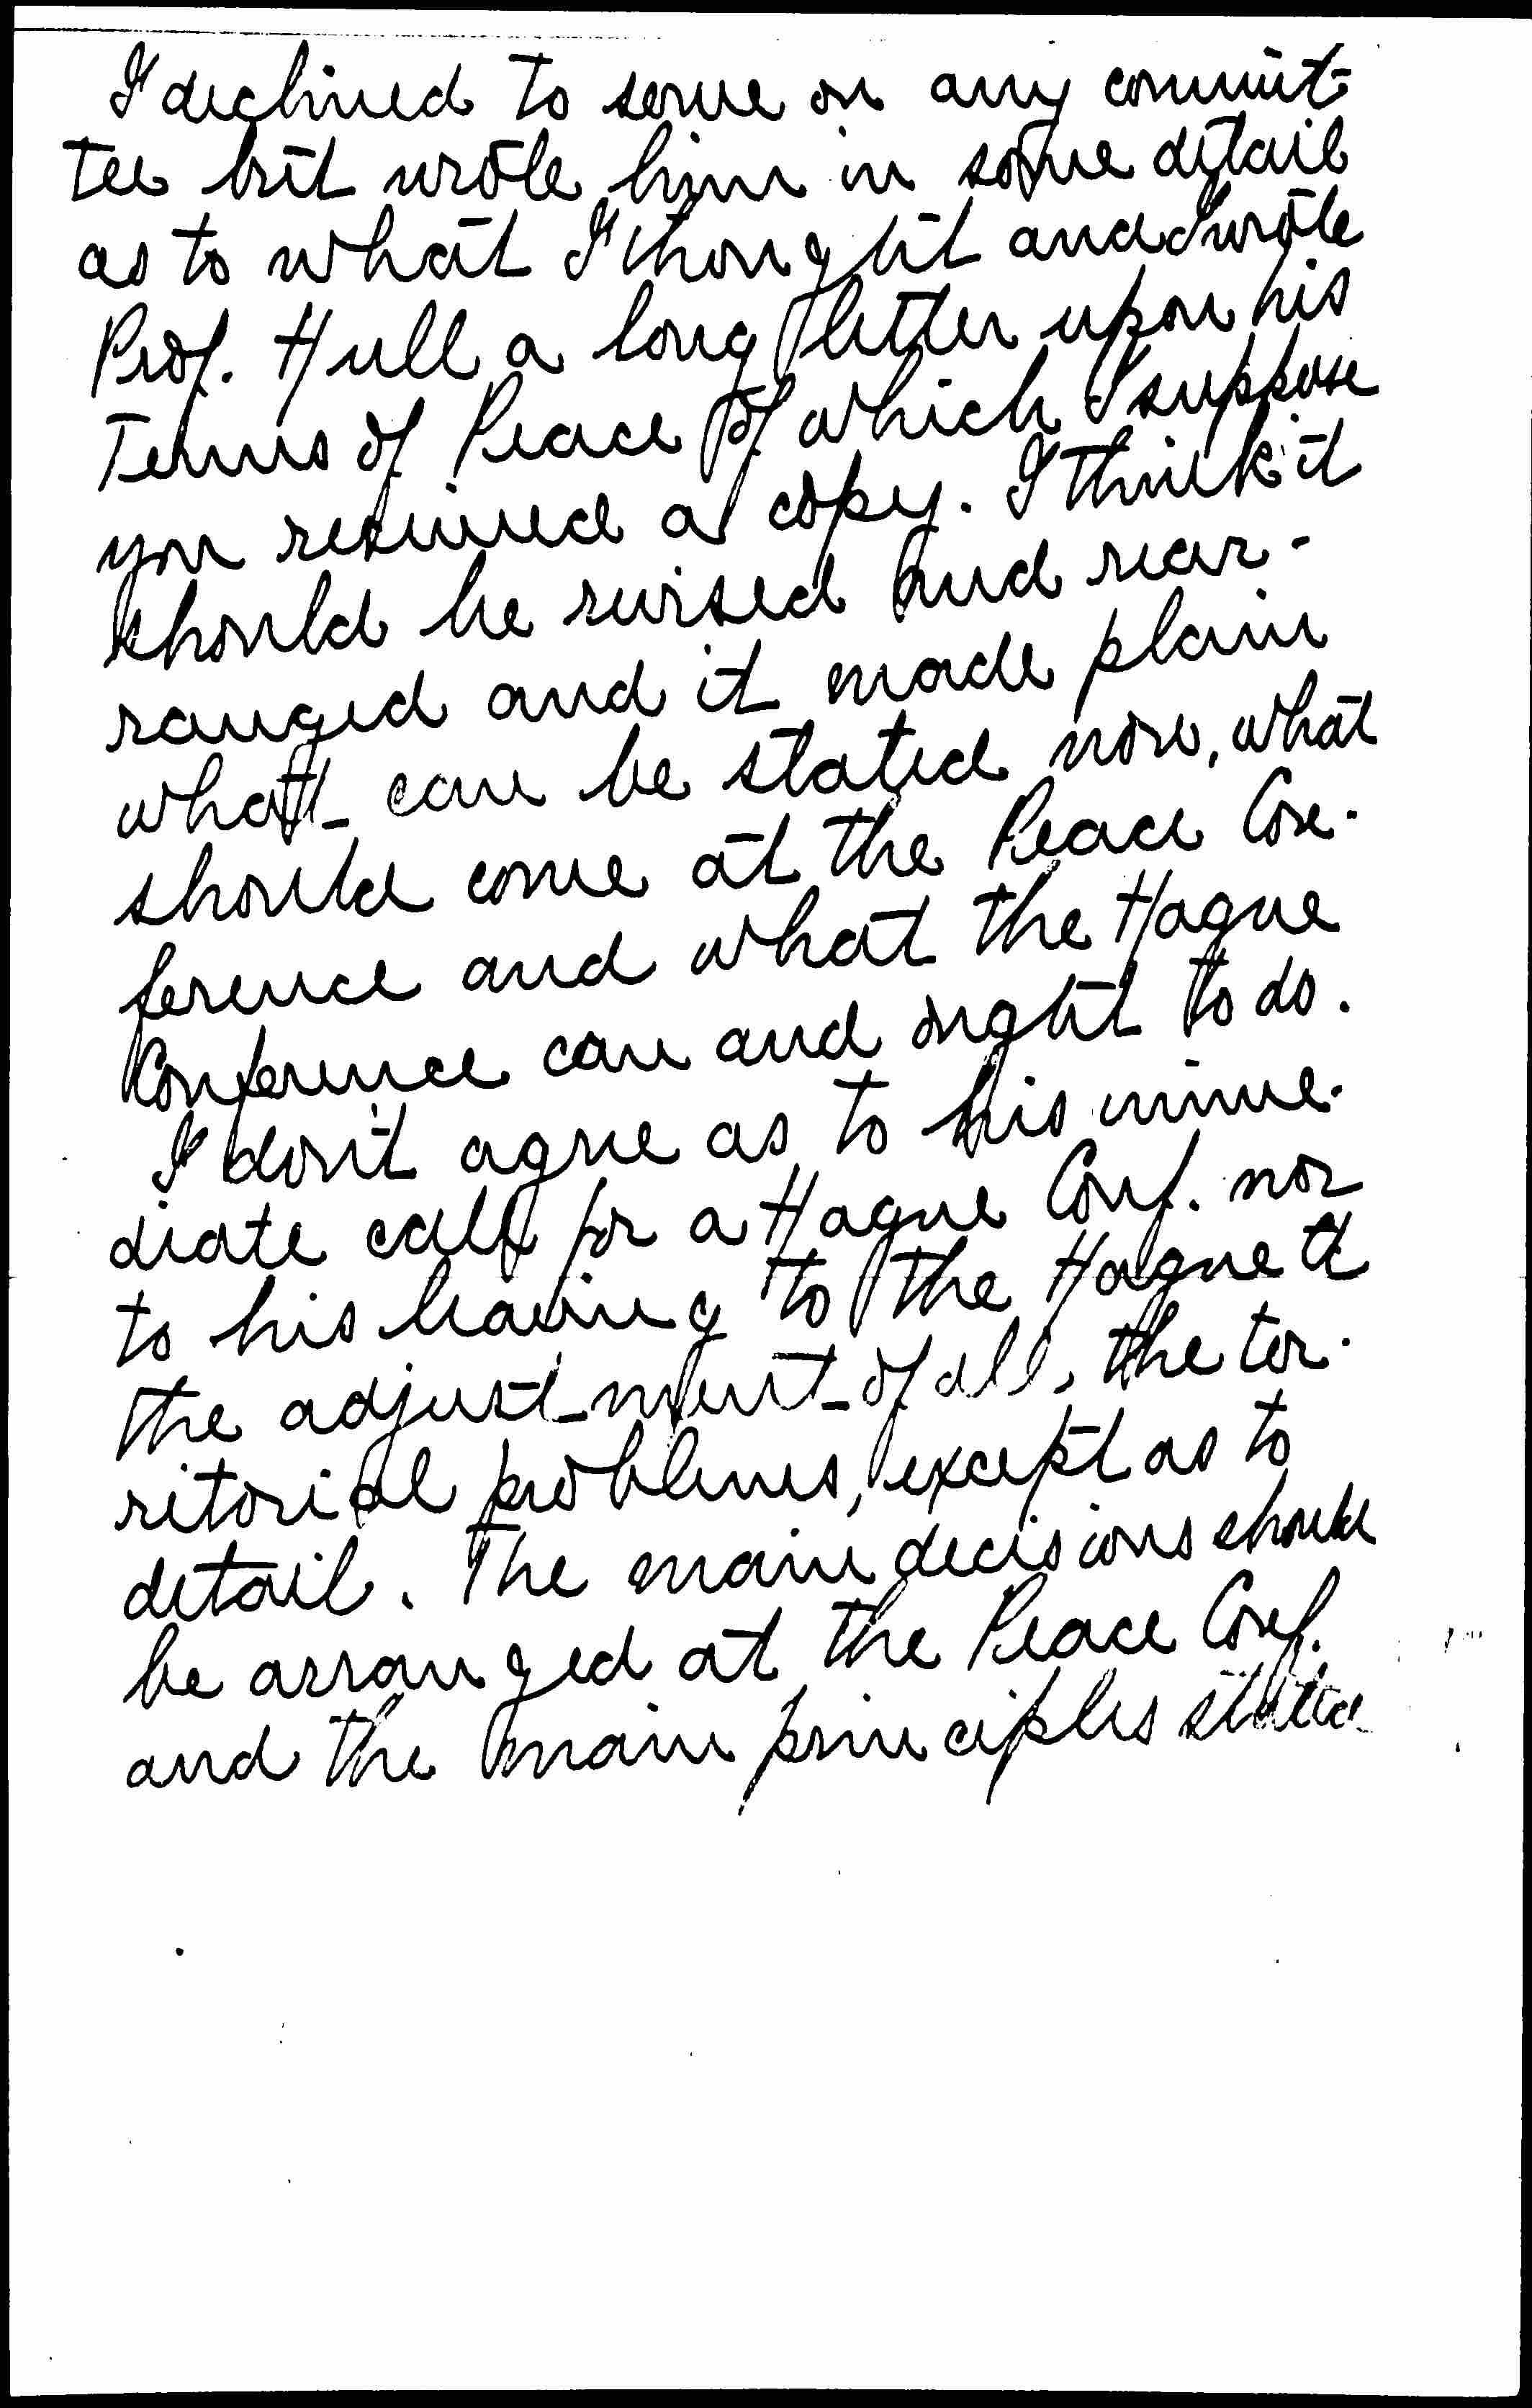 I declined to serve on any commit-
tee but wrote him in some detail
as to what I thought and I wrote
Prof. Hull a long letter upon his
Terms of Peace of which I suppose
you received a copy. I think it
should be revised and rear-
ranged and it made plain
what can be stated now, what
should come at the Peace Con-
ference and what the Hague
Conference can and ought to do.
I don't agree as to his imme-
diate call for a Hague Conf. nor
to his leaving to the Hague
the adjustment of all the ter-
ritorial problems, except as to
detail. The main decisions should
be arranged at the Peace Conf.
and the main principles stated